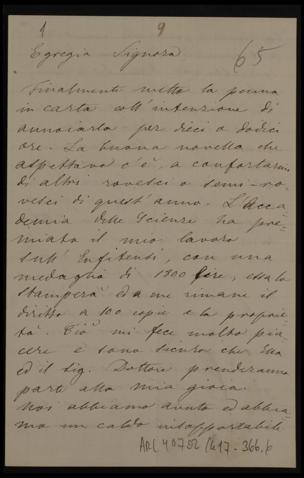 1 9
65
Egregia Signora
Finalmente metto la penna
in carta coll'intenzione di
annoiarla per dieci o dodici
ore. La buona novella che
aspettava c'è, a confortarmi
di altri rovesci o semi-ro-
vesci di quest'anno. L'Acca-
demia delle Scienze ha pre-
miato il mio lavoro
sull'Enfiteusi, con una
medaglia di 1800 lire, essa lo
stamperà ed a me rimane il
diritto a 100 copie e la proprie-
tà. Ciò mi fece molto pia-
cere e sono sicuro che Ella
ed il Sig. Dottore prenderanno
parte alla mia gioia.
Noi abbiamo avuto ed abbia-
mo un caldo insopportabile